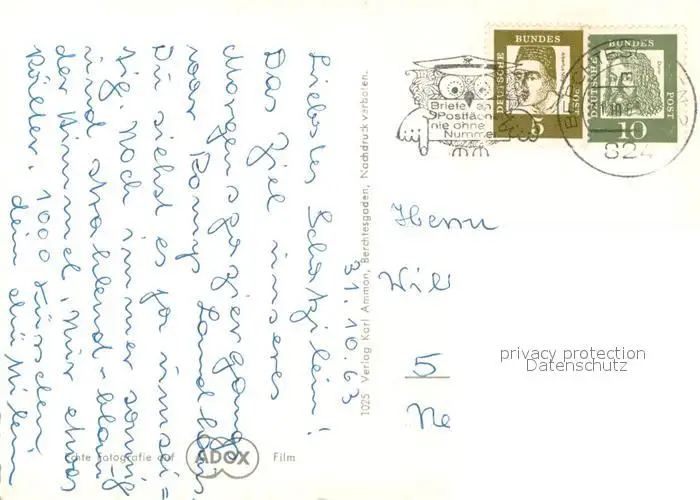 31.10.63
Liebster Schatzilein!
Das Ziel unseres
Morgenspaziergangs
war Landhaus
Du siehst es ja umsei=
tig. Noch immer sonnig
und strahlend-blau
der Himmel. Nur etwas
kälter. 1000 Küsschen
dein
1025 Verlag Karl Ammon, Berchtesgaden, Nachdruck verboten.
Echte Fotografie auf ADOX Film
Briefe an
Postfach
nie ohne
Nummer
DEUTSCHE BUNDESPOST
5
DEUTSCHE BUNDES POST
10
824
Herrn
Will
5
Ne
privacy protection
Datenschutz